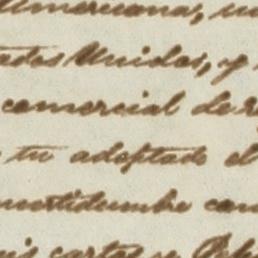 Americana,
Estados Unidos, y
comercial de
tu adoptado el
incertidumbre
cartas y